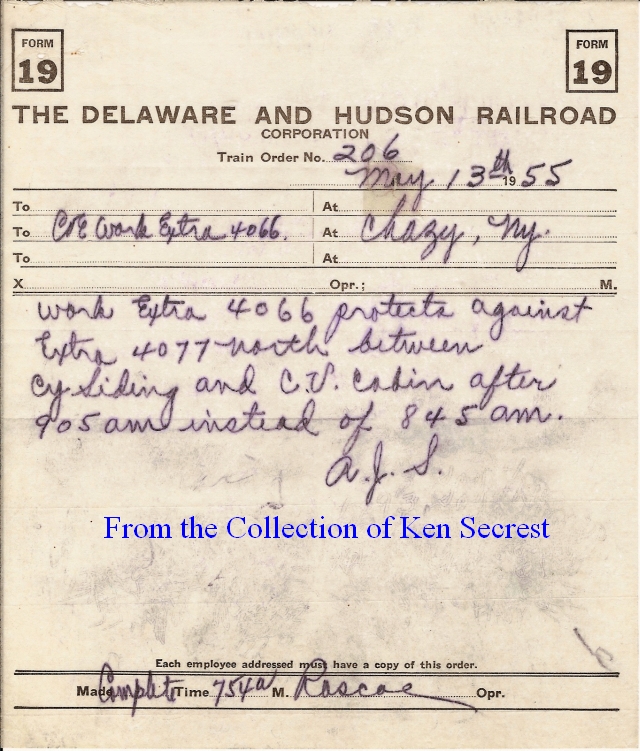 FORM 19 FORM 19
THE DELAWARE AND HUDSON RAILROAD
CORPORATION
Train Order No. 206
May 13th 1955
To At
To C&E Work Extra 4066. At Chazy, Ny.
To At
X Opr.; M.
Work Extra 4066 protects against
Extra 4077 north between
Cy Siding and C.V. Cabin after
905 am instead of 845 am.
A.J.S.
From the Collection of Ken Secrest
Each employee addressed must have a copy of this order.
Made Complete Time 754a M. Roscoe Opr.